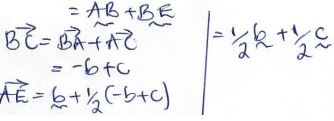 = A͟B + B͟E
B͞C = B͞A + A͞C
= -b + c
A͞E = b̰ + ½(-b + c)
= ½ b̰ + ½ c̰